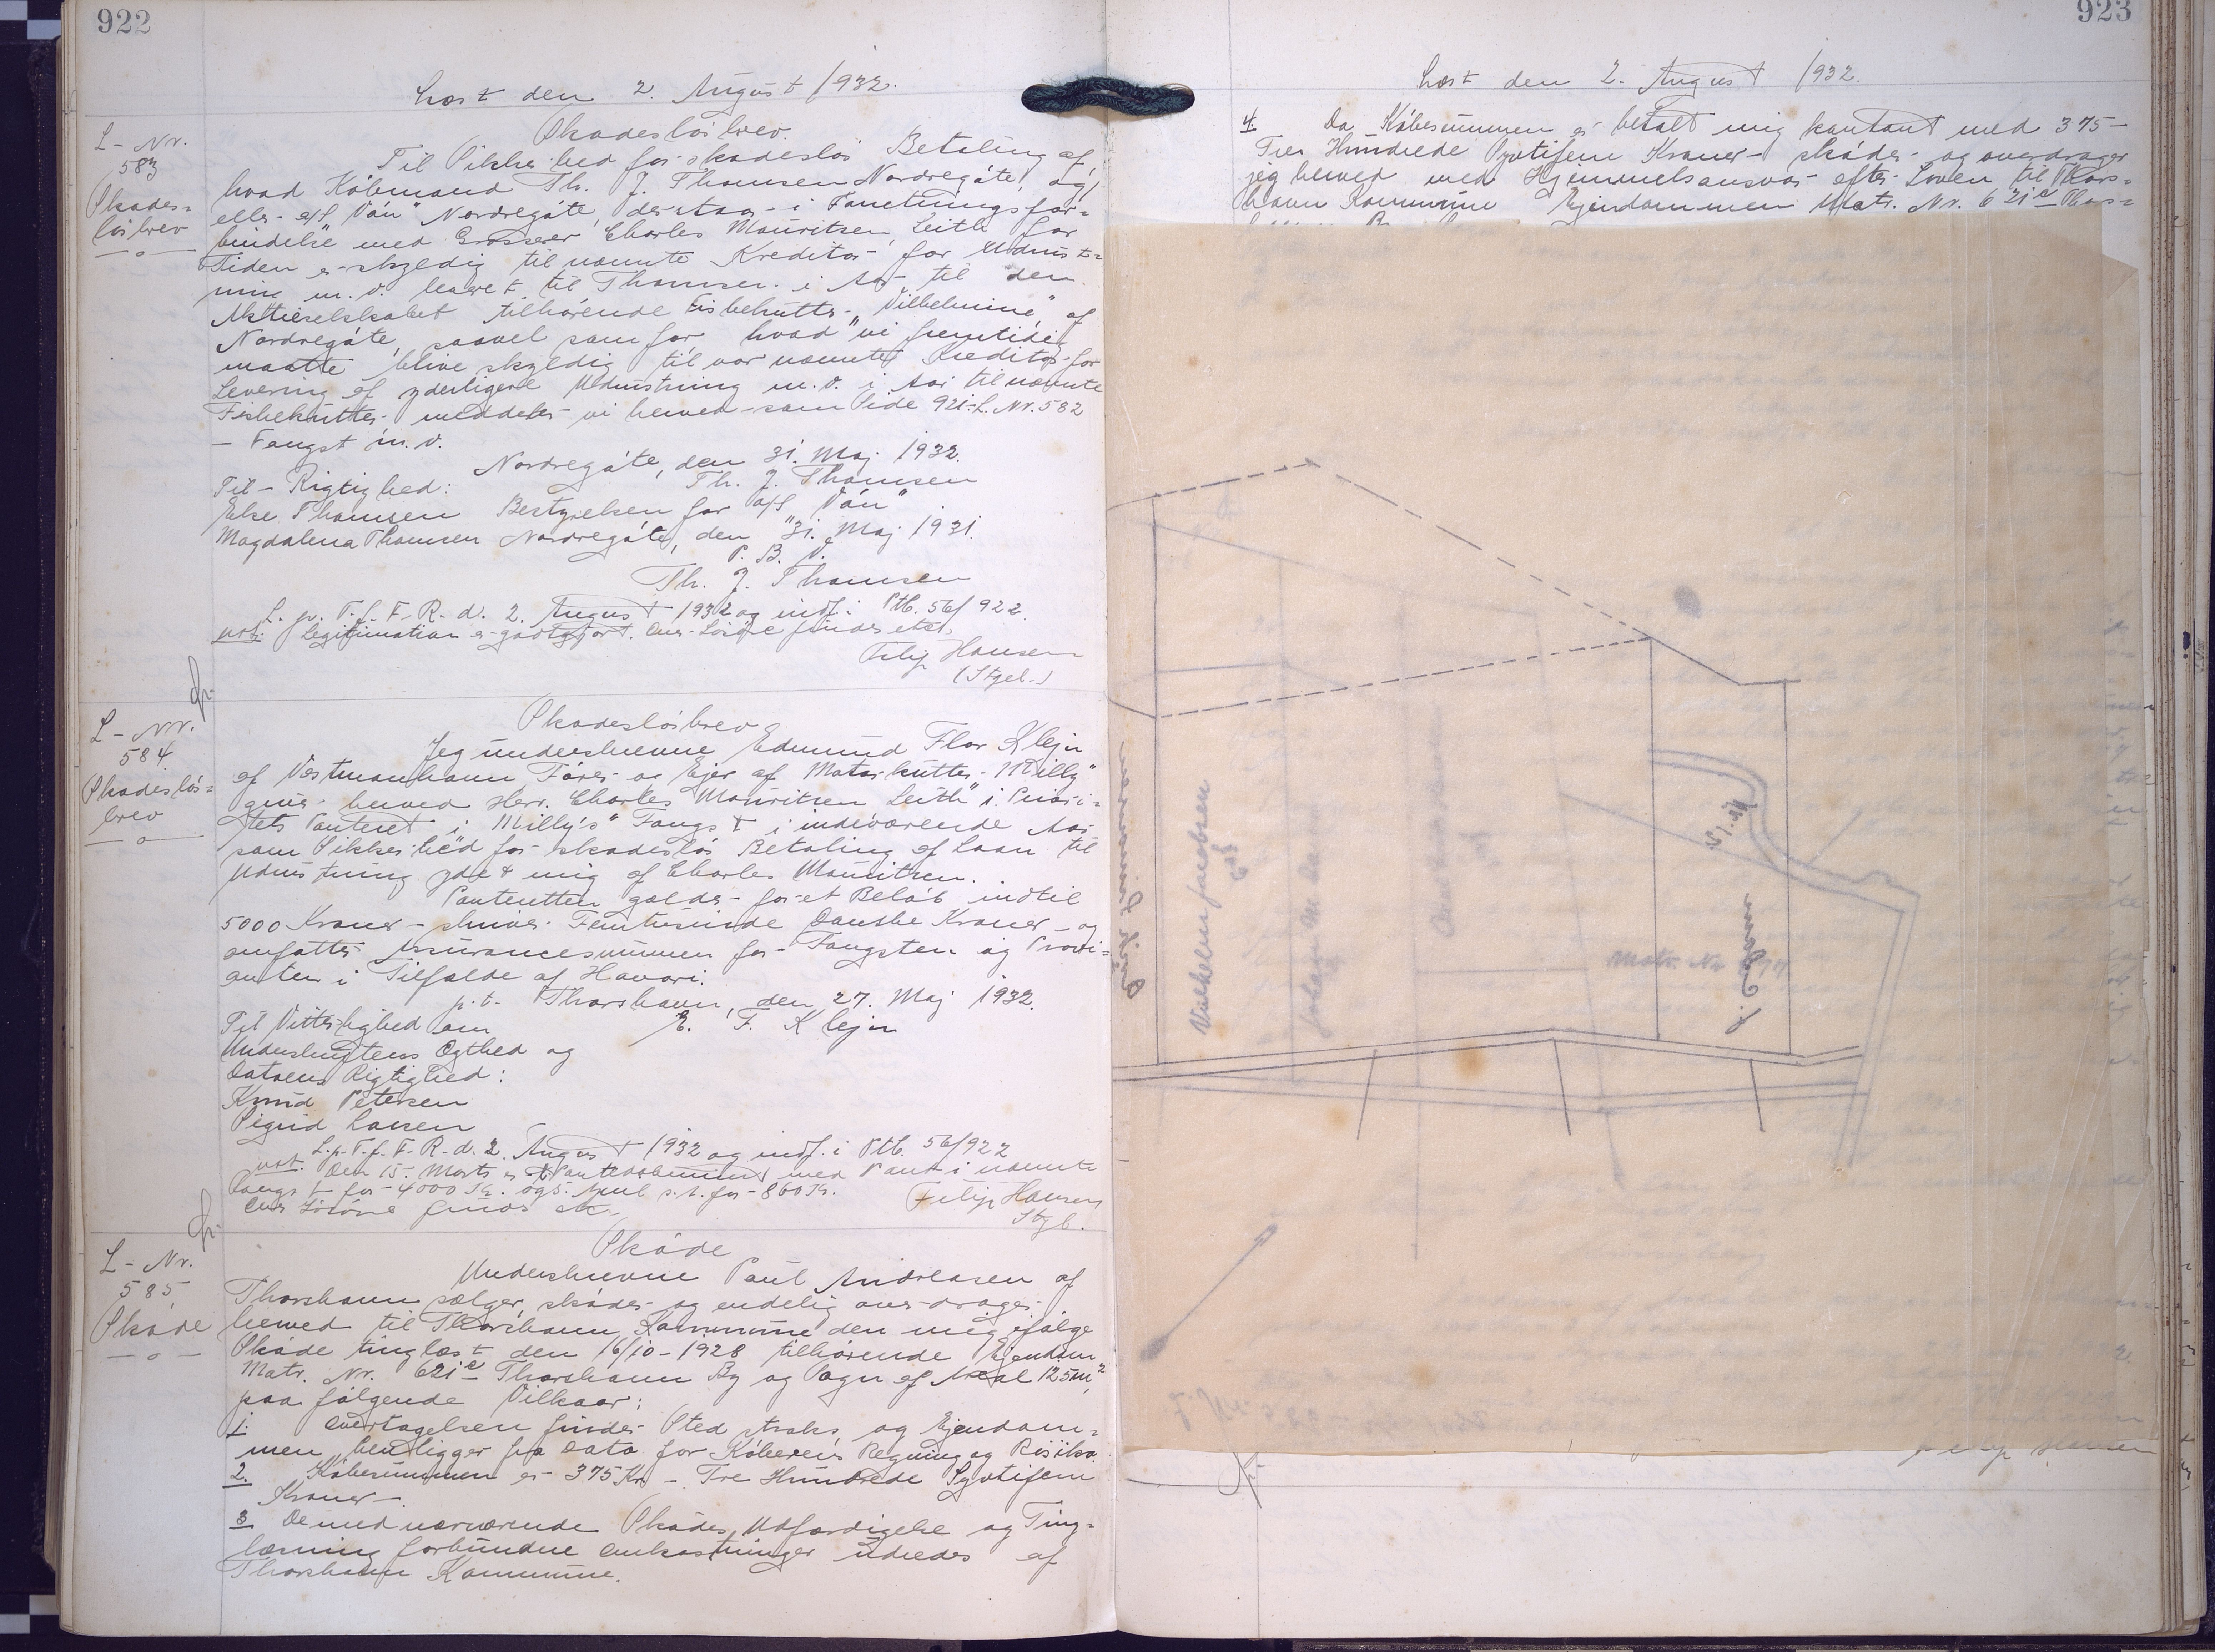 922
Læst den 2. August 1932.
L-Nr.
583
Skades=
løsbrev
Skadesløsbrev.
Til Sikkerhed for skadesløs Betaling af
hvad Købmand Th. J. Thomsen Nordregøte, og/
eller A/S "Ván" Nordregøte, der staar i Forretningsfor=
bindelse med Grosserer Charles Mouritsen Leith for
Tiden er skyldig til nævnte Kreditor for Udrust=
ning m.v. leveret til Thomsen i Aar til den
Aktieselskabet tilhørende Fiskekutter "Vilhelmine" af
Nordregøte, saavel som for hvad vi fremtidig
maatte blive skyldig til vor nævnte Kreditor for
Levering af yderligere Udrustning m.v. i Aar til nævnte
Fiskekutter meddeler vi herved - som Side 921 L. Nr. 582
- Fangst m.v.
Nordregøte, den 31. Maj 1932.
Til - Rigtighed: Th. J. Thomsen
Else Thomsen Bestyrelsen for A/S "Ván"
Magdalena Thomsen Nordregøte, den 31. Maj 1931.
P. B. V.
Th. J. Thomsen
L. p. T. f. F. R. d. 2. August 1932 og indf. i Ptb. 56/922.
not: Legitimation er godtgjort. Løsøre findes etc.
Filip Hansen
(Stgel.)
L-Nr.
584
Skadesløs=
brev
Skadesløsbrev
Jeg underskrevne Edmund Flor Klejn
af Vestmanhavn Fører og Ejer af Motorkutter "Milly"
giver herved Herr. Charles Mouritsen Leith i Priori=
tets Panteret i "Milly's" Fangst i indeværende Aar
som Sikkerhed for skadesløs Betaling af Laan til
Udrustning ydet mig af Charles Mouritsen.
Panteretten gælder for et Beløb indtil
5000 Kroner - skriver Femtusinde Danske Kroner - og
omfatter Assurancesummen for Fangsten og Provi=
anten i Tilfælde af Havari.
p.t. Thorshavn, den 27. Maj 1932.
Til Vitterlighed om E. F. Klejn
Underskriftens Ægthed og
Datoens Rigtighed:
Knud Petersen
Sigrid Larsen
L. p. T. f. F. R. d. 2. August 1932 og indf. i Ptb. 56/922
not. Den 15. Marts er med Pant i nævnte
Fangst for 4000 Kr. og 5. April s.A. for 860 Kr.
Løsøre findes etc. Filip Hansen
Stgb.
L-Nr.
585
Skøde
Skøde
Underskrevne Paul Andreasen af
Thorshavn sælger, skøder og endelig overdrager
herved til Thorshavn Kommune den mig ifølge
Skøde tinglæst den 16/10-1928 tilhørende Ejendom
Matr. Nr. 621e Thorshavn By og Sogn af Areal 125 m²
paa følgende Vilkaar:
1. Overtagelsen finder Sted straks og Ejendom=
men henligger fra Dato for Køberens Regning og Risiko.
2. Købesummen er 375 Kr - Tre Hundrede Syvtifem
Kroner -.
3 De med nærværende Skødes Udfærdigelse og Ting=
læsning forbundne Omkostninger udredes af
Thorshavn Kommune.
923
Læst den 2. August 1932.
4. Da Købesummen er betalt mig kontant med 375 -
Tre Hundrede Syvtifem Kroner - skøder og overdrager
jeg herved med Hjemmelsansvar efter Loven til Thors=
havn Kommune Ejendommen Matr. Nr. 621e Thors=
Vilhelm Jacobsen
Matr. Nr.
Filip Hansen